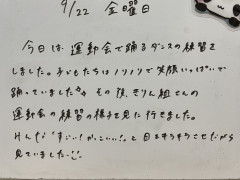 9/22 金曜日
今日は、運動会で踊るダンスの練習を
しました。子どもたちはノリノリで笑顔いっぱいで
踊っていました♪♪ その後、きりん組さんの
運動会の練習の様子を見に行きました。
みんな「すごい!かっこいい!」と目をキラキラさせながら
見ていました